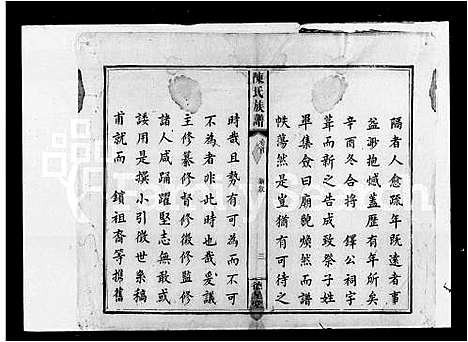 隔者人愈疏年既遠者事
益渺抱憾蓋歷有年所矣
辛酉冬合將 鐸公祠宇
葺而新之告成致祭子姓
畢集僉曰廟貌煥然而譜
帙蕩然是豈猶有可待之
陳氏族譜
卷首
新敘
二
時哉且勢有可為而不可
不為者非此時也哉爰議
主修纂修督修徵修監修
諸人咸踴躍堅志無敢或
諉用是撰小引徵世系稿
甫就而 鎖祖裔等携舊